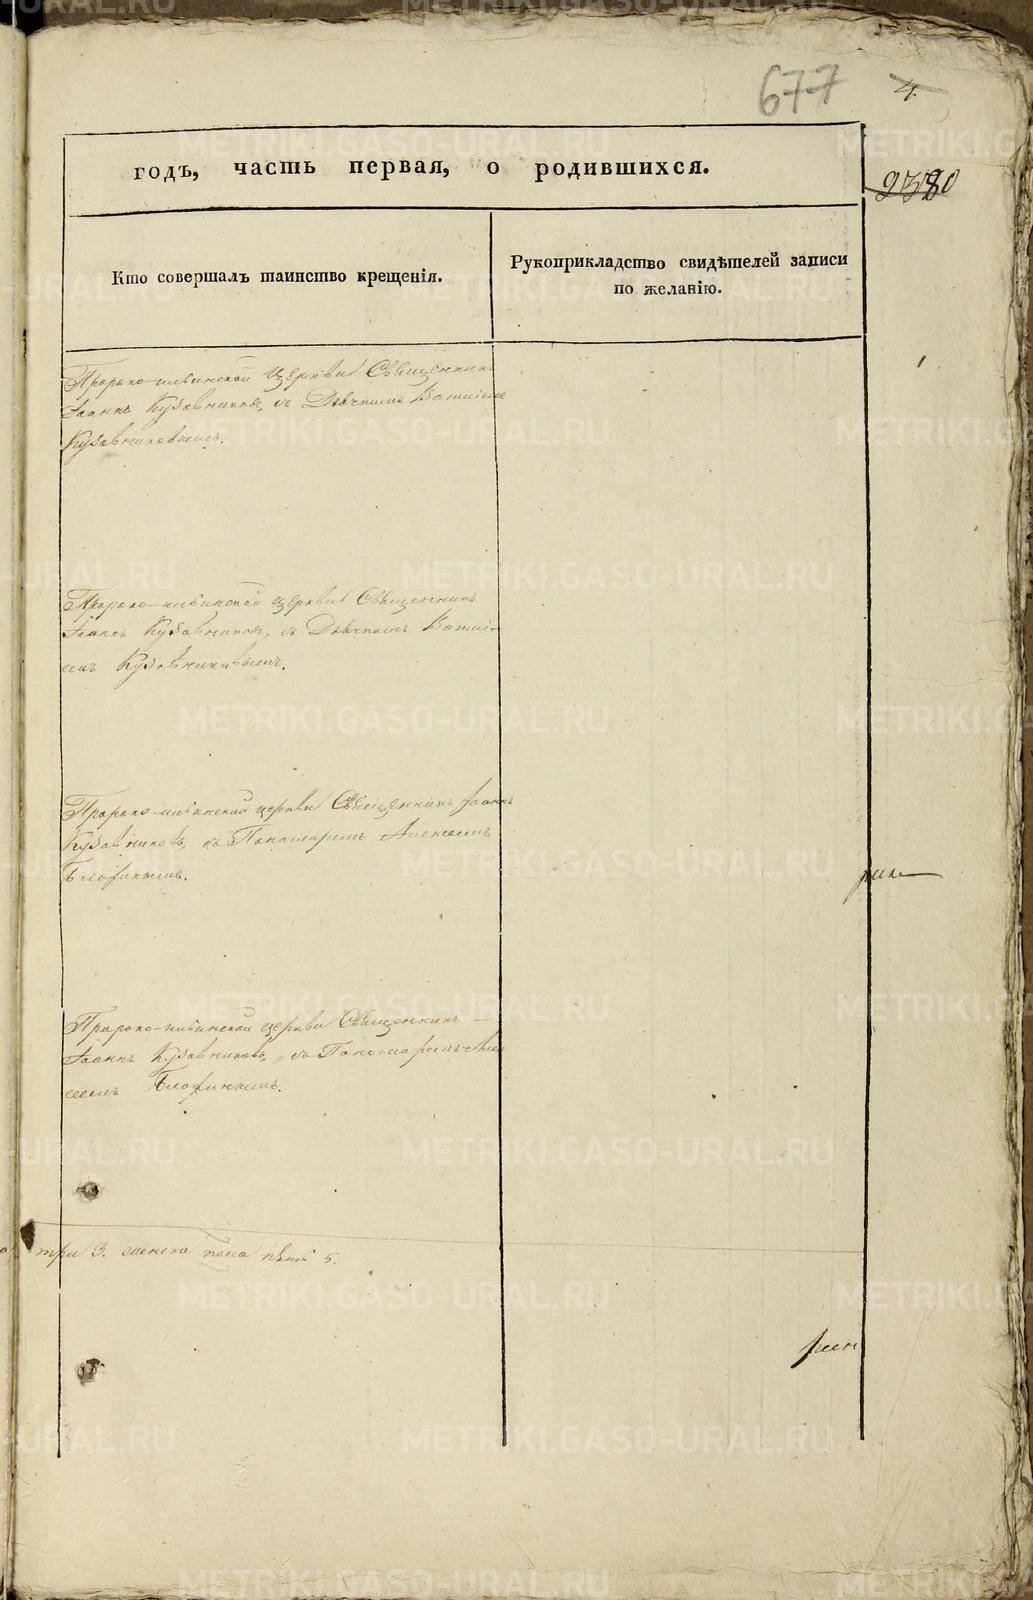 677
4
2380
годъ, часть первая, о родившихся.
Кто совершалъ таинство крещенія.
Рукоприкладство свидѣтелей записи
по желанію.
Пророко-ильинской церкви Священникъ
Іоаннъ Кубовниковъ, съ Дьячкомъ
Кубовниковымъ.
Пророко-ильинской церкви Священникъ
Іоаннъ Кубовниковъ, съ Дьячкомъ
Кубовниковымъ.
Пророко-ильинской церкви Священникъ Іоаннъ
Кубовниковъ, съ Пономаремъ Алексеемъ
Пророко-ильинской церкви Священникъ
Іоаннъ Кубовниковъ, съ Пономаремъ Але
сеемъ
три 3. женска пола пять 5.
METRIKI.GASO-URAL.RU